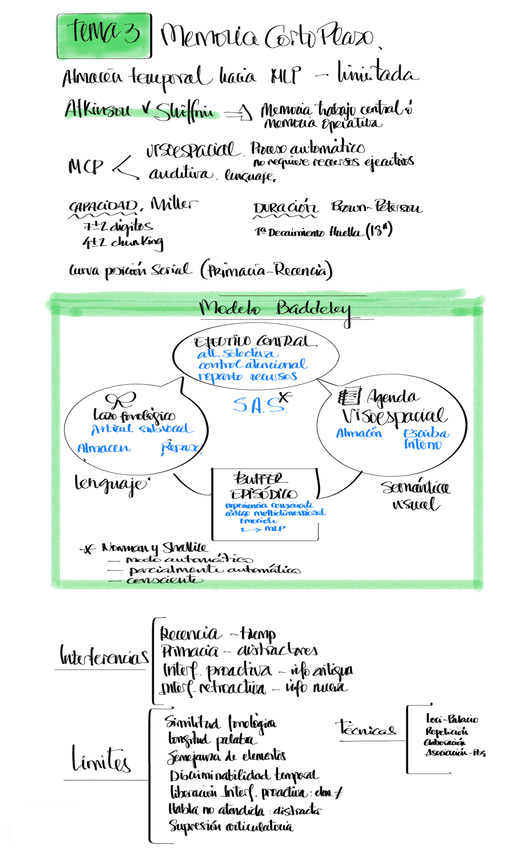 Tema 3 Memoria Corto Plazo.
Almacén temporal hacia MLP - limitada
Atkinson y Shiffrin ⇒ Memoria trabajo central ó
Memoria Operativa
MCP < visoespacial. Proceso automático
no requiere recursos ejecutivos
auditiva. lenguaje.
CAPACIDAD. Miller
7±2 dígitos
4±2 chunking
DURACIÓN Brown-Peterson
Tª Decaimiento Huella (18")
Curva posición Serial (Primacia-Recencia)
Modelo Baddeley
EJECUTIVO CENTRAL.
att. selectiva
control atencional
reparto recursos
S.A.S.*
lazo fonológico
Articul subvocal
Almacen Repaso
lenguaje
Agenda
Visoespacial
Almacén Escriba
Interno
Semántica
visual
BUFFER
EPISÓDICO
experiencia consciente
código multidimensional
emoción
↳ MLP
* Norman y Shallice
- modo automático
- parcialmente automático
- consciente
Interferencias
Recencia - tiemp
Primacia - distractores
Interf. proactiva - info antigua
Interf. retroactiva - info nueva
Límites
Similitud fonológica
Longitud palabra
Semejanza de elementos
Discriminabilidad temporal
Liberación Interf. proactiva: elem ≠
Habla no atendida: distracto
Supresión articulatoria
Técnicas
Loci-Palacio
Repetición
Elaboración
Asociación